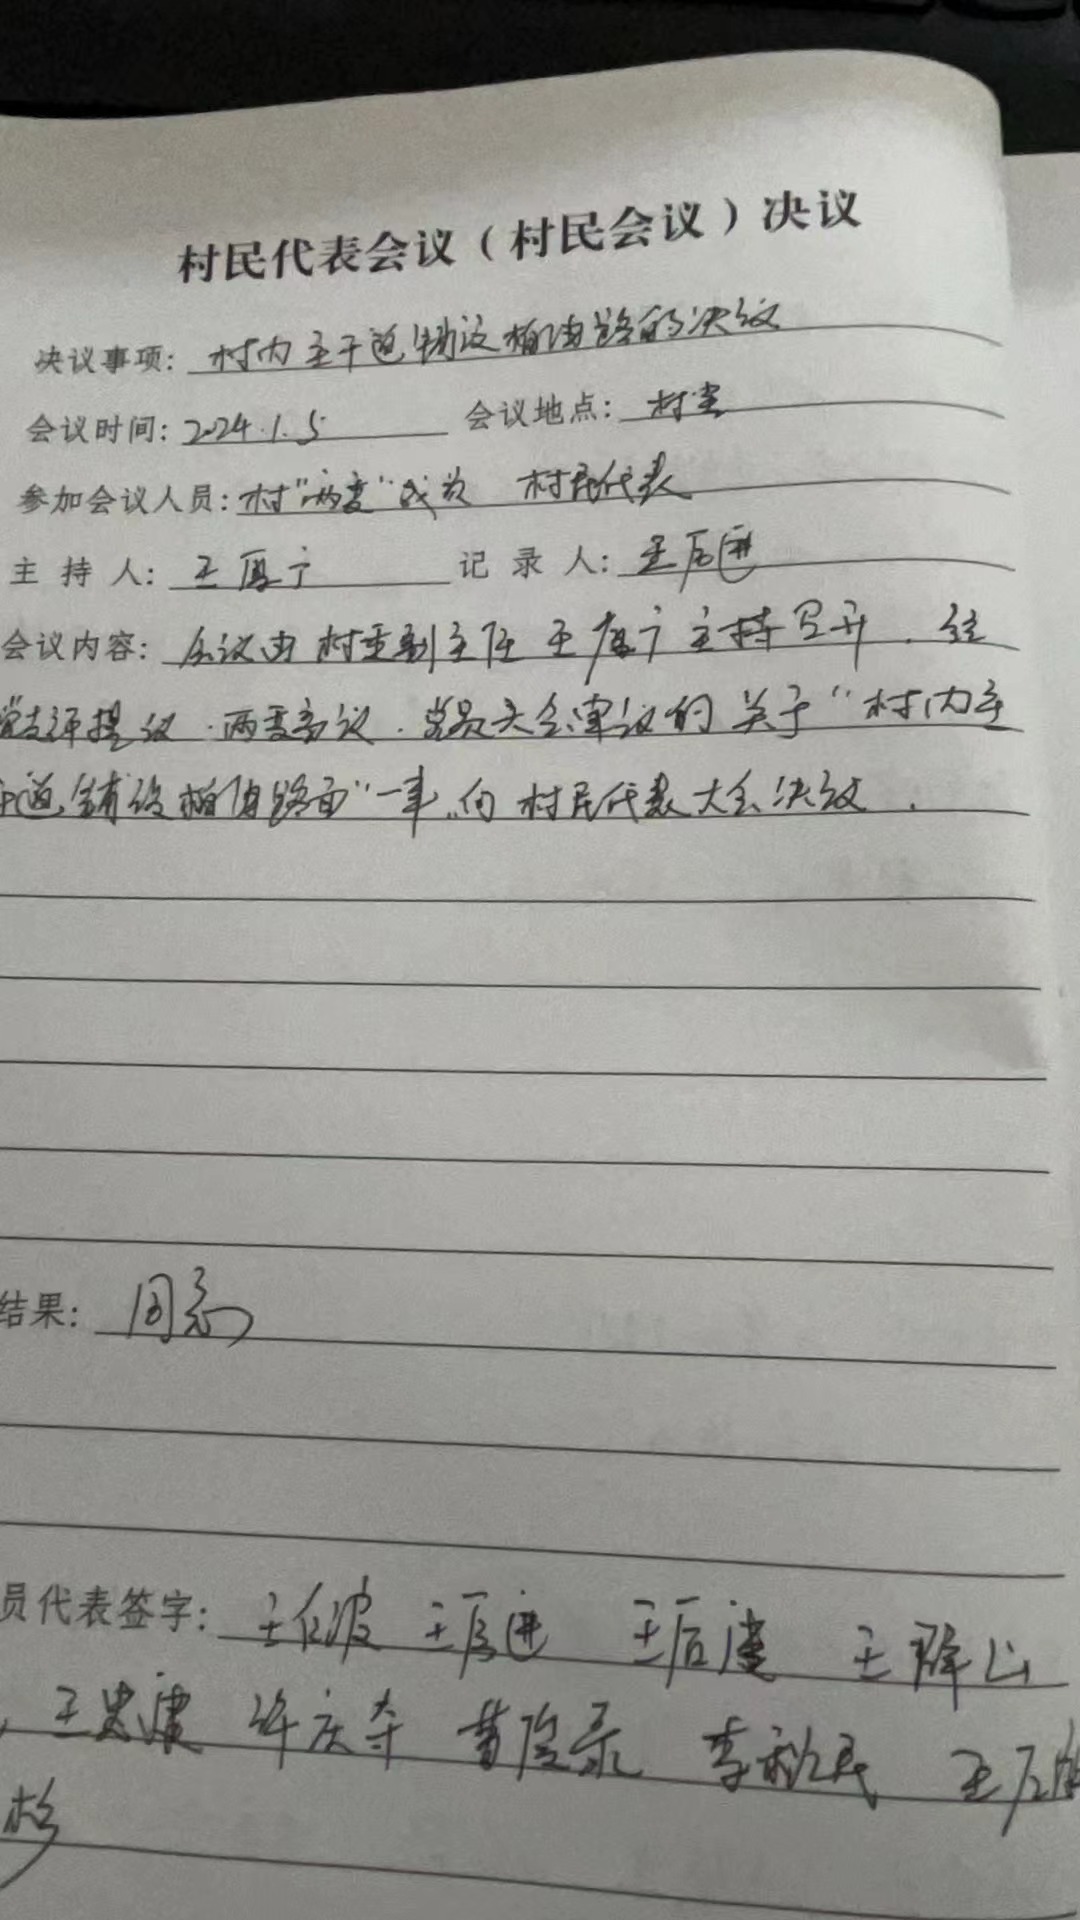 村民代表会议（村民会议）决议
决议事项：村内主干道铺设柏油路的决议
会议时间：2024.1.5 会议地点：村室
参加会议人员：村"两委"成员 村民代表
主持人：王厚广 记录人：王后进
会议内容：会议由村委副主任王厚广主持召开．经
党支部提议．两委商议．党员大会审议的关于"村内主
干道铺设柏油路面"一事．向村民代表大会决议．
结果：同意
员代表签字：王后进 王后
王 李秋民 王后